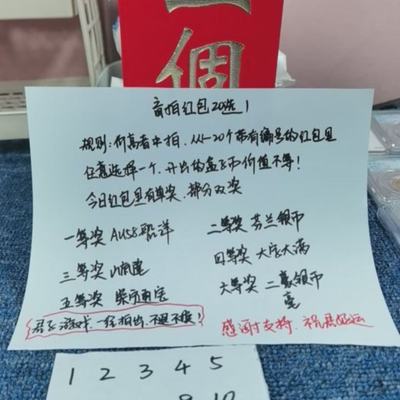 個
竞拍红包20选1
规则:价高者中拍,从1-20个带有编号的红包里
任意选择一个,开出的盒子币价值不等!
今日红包里有单奖,部分双奖
一等奖 AU58船洋
二等奖 芬兰银币
三等奖
四等奖 大定大满
五等奖 崇宁通宝
六等奖 二毫银币
毫
游戏,一经拍出,不退不换!
感谢支持,祝君好运
1 2 3 4 5
9 10